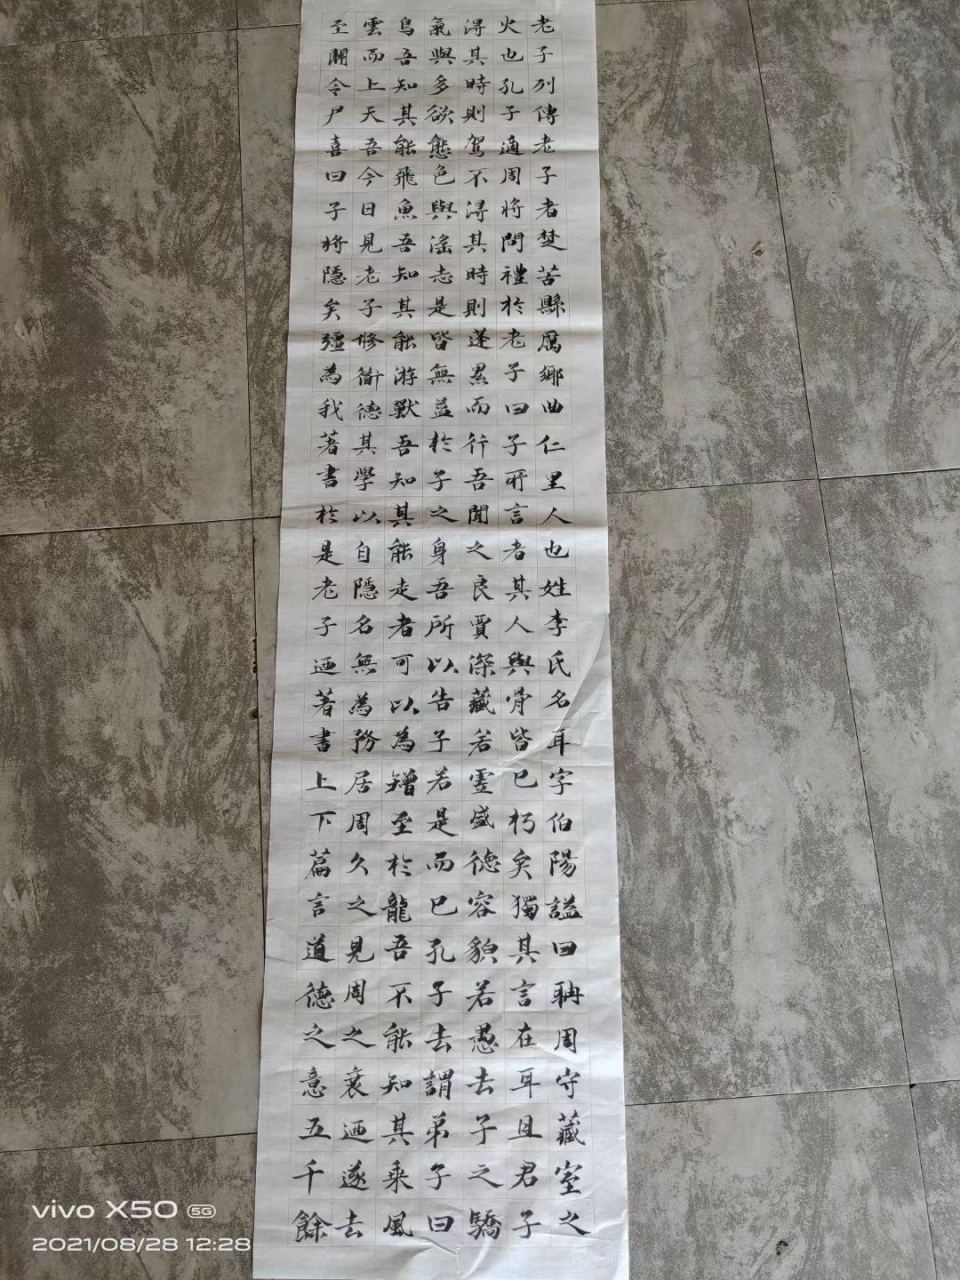 老子列傳老子者楚苦縣厲鄉曲仁里人也姓李氏名耳字伯陽謚曰聃周守藏室之
火也孔子適周將問禮於老子曰子所言者其人與骨皆已朽矣獨其言在耳且君子
淂其時則駕不淂其時則蓬累而行吾聞之良賈深藏若虛盛德容貌若愚去子之驕
氣與多欲態色與淫志是皆無益於子之身吾所以告子若是而已孔子去謂弟子曰
鳥吾知其能飛魚吾知其能游獸吾知其能走者可以為矰至於龍吾不能知其乘風
雲而上天吾今日見老子修衜德其學以自隱名無為務居周久之見周之衰迺遂去
至關令尹喜曰子將隱矣彊為我著書於是老子迺著書上下篇言道德之意五千餘
vivo X50 5G
2021/08/28 12:28